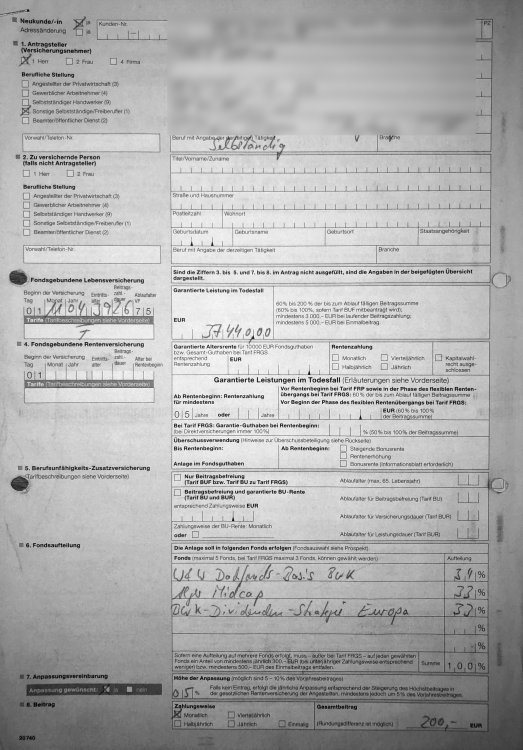 Neukunde/-in ja Kunden-Nr. PZ
Adressänderung ja
1. Antragsteller
(Versicherungsnehmer)
1 Herr 2 Frau 4 Firma
Berufliche Stellung
Angestellter der Privatwirtschaft (3)
Gewerblicher Arbeitnehmer (4)
Selbstständiger Handwerker (9)
Sonstige Selbstständige/Freiberufler (1)
Beamter/öffentlicher Dienst (2)
Vorwahl/Telefon-Nr. Beruf mit Angabe der derzeitigen Tätigkeit Branche
Selbständig
2. Zu versichernde Person
(falls nicht Antragsteller)
Titel/Vorname/Zuname
1 Herr 2 Frau
Berufliche Stellung
Angestellter der Privatwirtschaft (3)
Straße und Hausnummer
Gewerblicher Arbeitnehmer (4)
Selbstständiger Handwerker (9)
Postleitzahl Wohnort
Sonstige Selbstständige/Freiberufler (1)
Beamter/öffentlicher Dienst (2)
Geburtsdatum Geburtsname Geburtsort Staatsangehörigkeit
Vorwahl/Telefon-Nr. Beruf mit Angabe der derzeitigen Tätigkeit Branche
3. Fondsgebundene Lebensversicherung
Sind die Ziffern 3. bis 5. und 7. bis 8. im Antrag nicht ausgefüllt, sind die Angaben in der beigefügten Übersicht
dargestellt.
Beginn der Versicherung
Tag Monat Jahr Eintritts-alter Beitrags-zahl.-dauer Ablaufalter VP
01 11 04 39 26 75
Tarife (Tarifbeschreibungen siehe Vorderseite)
Garantierte Leistung im Todesfall
60% bis 200 % der bis zum Ablauf fälligen Beitragssumme
(60% bis 100%, sofern Tarif BUF mitbeantragt wird),
mindestens 5.000,- EUR bei laufender Beitragszahlung;
mindestens 5.000,- EUR bei Einmalbeitrag.
EUR
37.440,00
4. Fondsgebundene Rentenversicherung
Beginn der Versicherung
Tag Monat Jahr Eintritts-alter Beitrags-zahl.-dauer Alter bei Rentenbeginn
01
Tarife (Tarifbeschreibungen siehe Vorderseite)
Garantierte Altersrente für 10000 EUR Fondsguthaben
bzw. Gesamt-Guthaben bei Tarif FRGS
entsprechend EUR
Rentenzahlung
Rentenzahlung
Monatlich Vierteljährlich Kapitalwahl-recht ausge-schlossen
Halbjährlich Jährlich
Garantierte Leistungen im Todesfall (Erläuterungen siehe Vorderseite)
Ab Rentenbeginn: Rentenzahlung
für mindestens
05 Jahre oder Jahre
Vor Rentenbeginn bei Tarif FRP sowie in der Phase des flexiblen Renten-
übergangs bei Tarif FRGS: 60% der bis zum Ablauf fälligen Beitragssumme
Vor Beginn der Phase des flexiblen Rentenübergangs bei Tarif FRGS:
EUR (60% bis 100%
der Beitragssumme)
Bei Tarif FRGS: Garantie-Guthaben bei Rentenbeginn:
(bei Direktversicherungen immer 100%) % (50% bis 100% der Beitragssumme)
Überschussverwendung (Hinweise zur Überschussbeteiligung siehe Rückseite)
Bis Rentenbeginn: Ab Rentenbeginn: Steigende Bonusrente
Rentenerhöhung
Anlage im Fondsguthaben Bonusrente (Informationsblatt erforderlich)
5. Berufsunfähigkeits-Zusatzversicherung
(Tarifbeschreibungen siehe Vorderseite)
Nur Beitragsbefreiung
(Tarif BUF bzw. Tarif BU zu Tarif FRGS) Ablaufalter (max. 65. Lebensjahr)
Beitragsbefreiung und garantierte BU-Rente
(Tarif BU und BUR) Ablaufalter für Beitragsbefreiung (Tarif BU)
entsprechend Zahlungsweise EUR
Ablaufalter für Versicherungsdauer (Tarif BUR)
Zahlungsweise der BU-Rente: Monatlich
oder Ablaufalter für Leistungsdauer (Tarif BUR)
6. Fondsaufteilung
Die Anlage soll in folgenden Fonds erfolgen (Fondsauswahl siehe Prospekt):
Fonds (maximal 5 Fonds, bei Tarif FRGS maximal 3 Fonds, können gewählt werden) Aufteilung
W&W Dachfonds-Basis BWK 34 %
Midcap 33 %
BWK-Dividenden-Strategie Europa 33 %
%
%
Sofern eine Aufteilung auf mehrere Fonds erfolgt, muss – außer bei Tarif FRGS – auf jeden gewählten
Fonds ein Anteil von mindestens jährlich 300,- EUR (bei unterjähriger Zahlungsweise entsprechend
weniger) bzw. mindestens 500,- EUR des Einmalbeitrags entfallen. Summe 100 %
7. Anpassungsvereinbarung
Anpassung gewünscht: ja nein
Höhe der Anpassung (möglich sind 5 – 10% des Vorjahresbeitrages)
05 % Falls kein Eintrag, erfolgt die jährliche Anpassung entsprechend der Steigerung des Höchstbeitrages in
der gesetzlichen Rentenversicherung der Angestellten, mindestens jedoch um 5% des Vorjahresbeitrages.
8. Beitrag
Zahlungsweise Gesamtbeitrag
Monatlich Vierteljährlich
Halbjährlich Jährlich Einmalig (Rundungsdifferenz ist möglich) 200,- EUR
20740